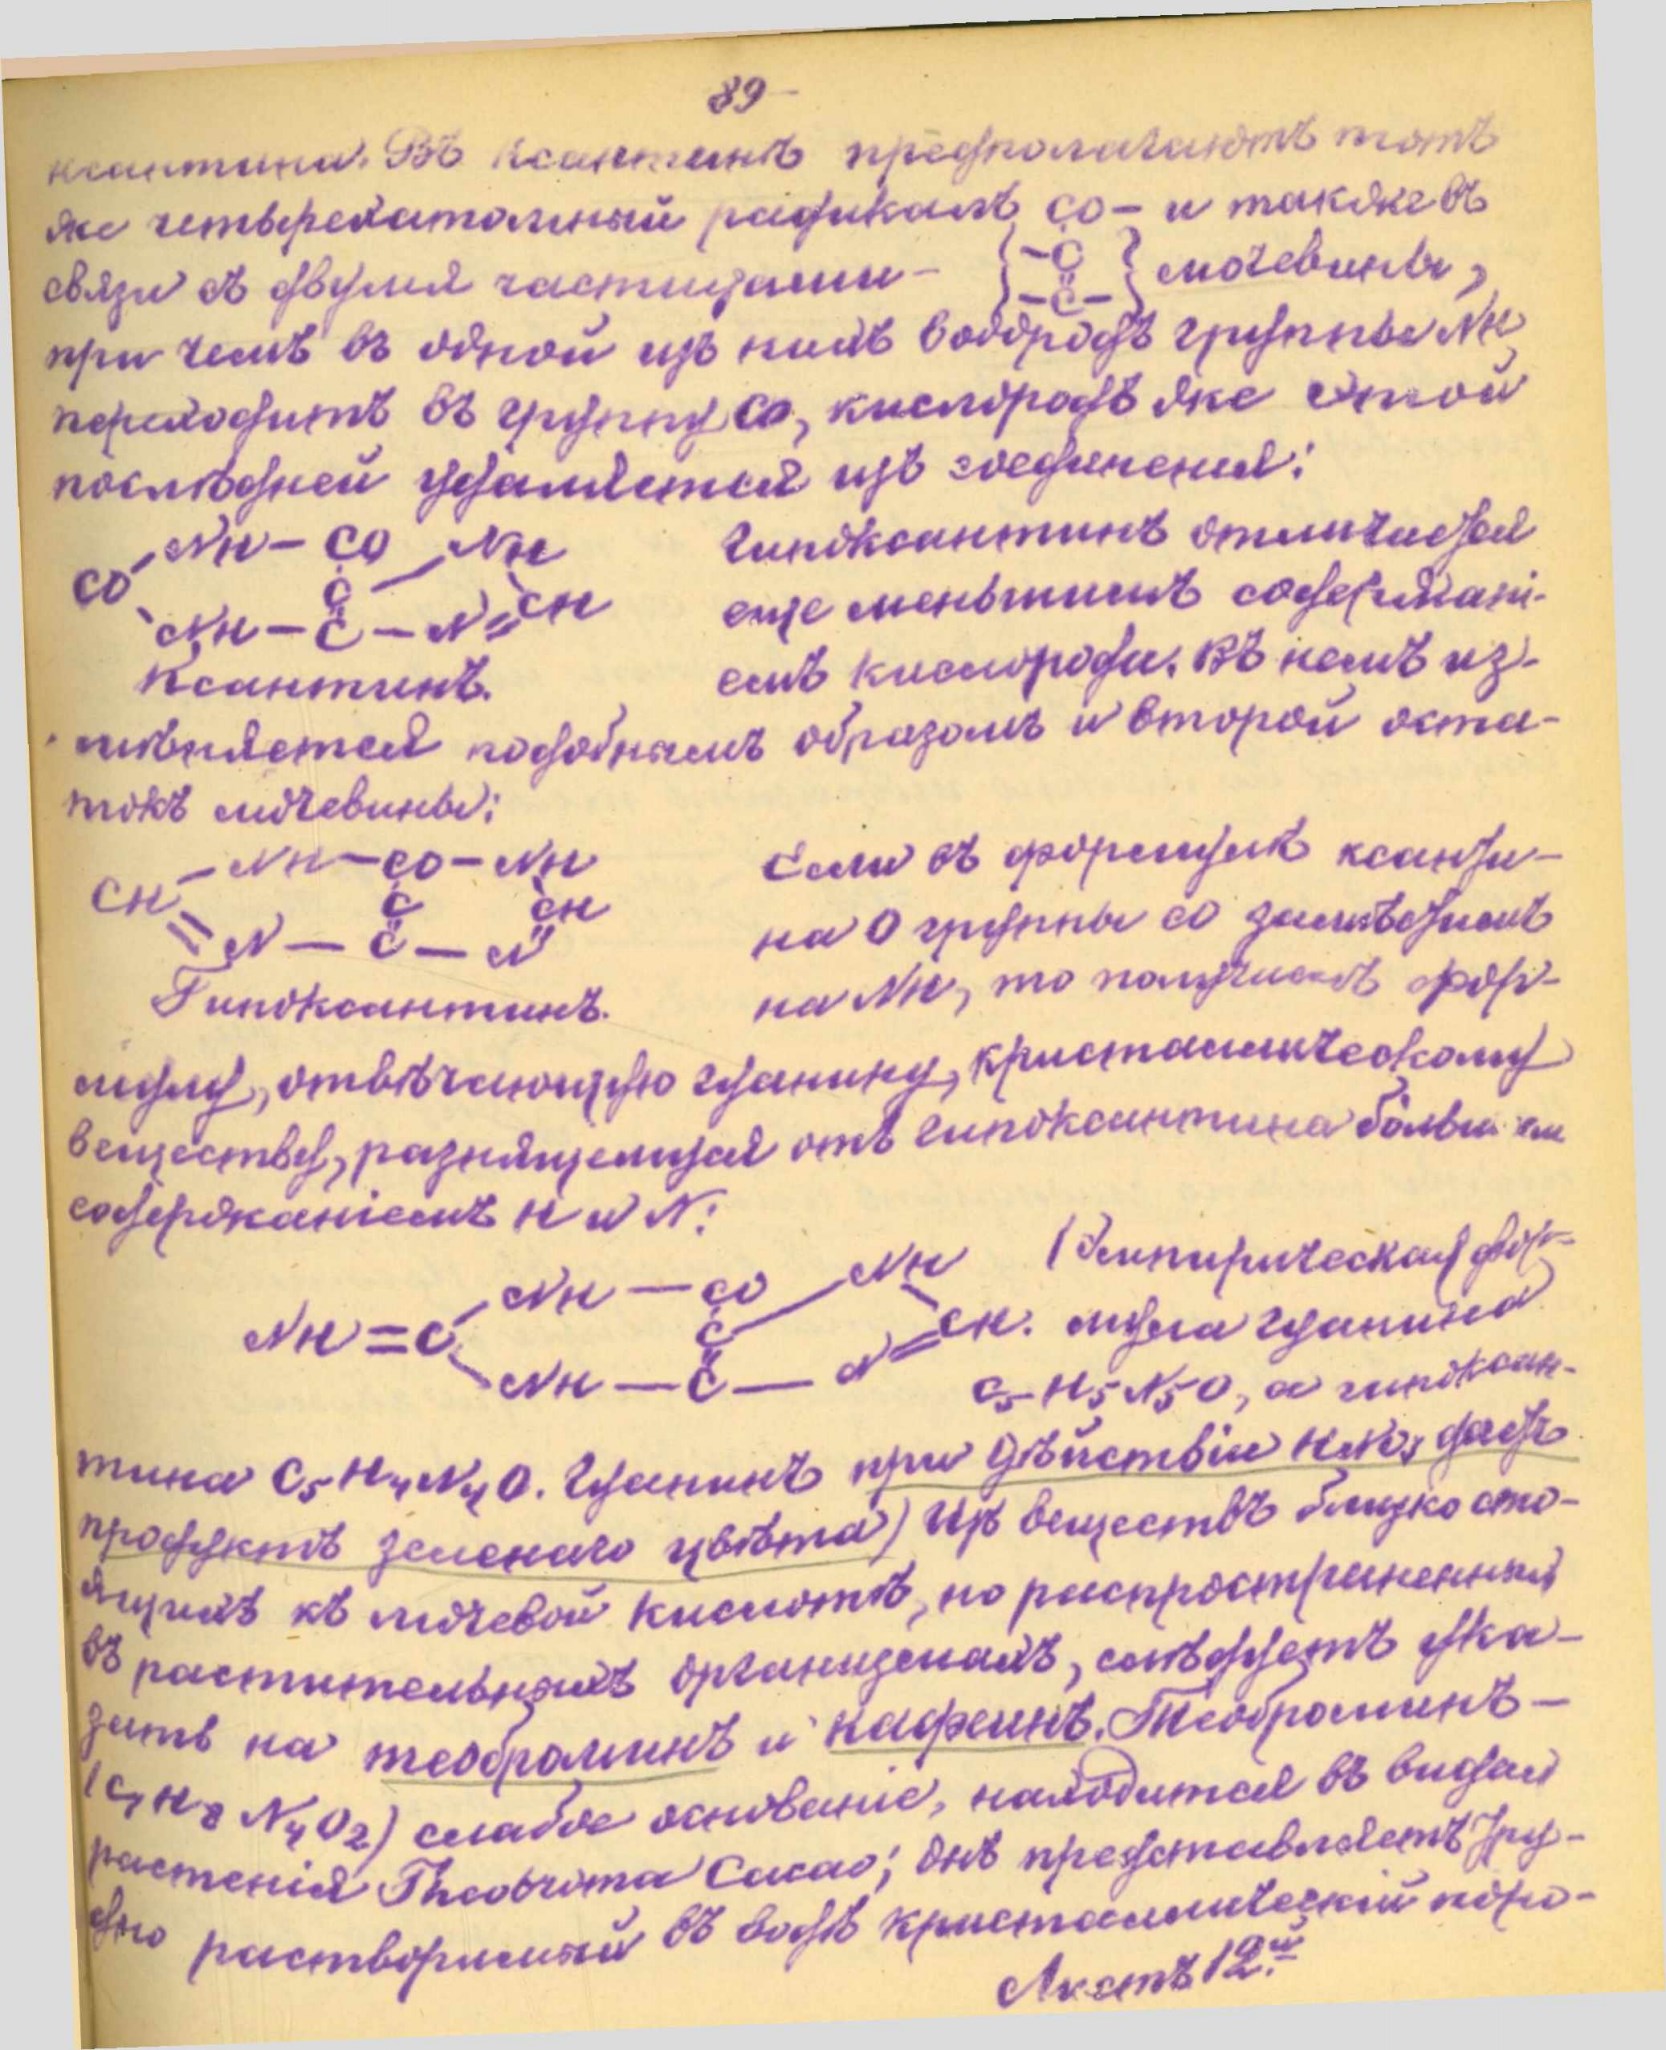 89
ксантина. Въ ксантинѣ предполагаютъ тотъ
же четырехатомный радикалъ CO – и также въ
связи съ двумя частицами – { –C C– } мочевины,
при чемъ въ одной изъ нихъ водородъ группы NH
переходитъ въ группу CO, кислородъ же этой
послѣдней удаляется изъ соединенія:
NH – CO NH Гипоксантинъ отличается
CO C
NH – C – N = CH еще меньшимъ содержані-
Ксантинъ. емъ кислорода. Въ немъ из-
мѣняется подобнымъ образомъ и второй оста-
токъ мочевины:
– NH – CO – NH Если въ формулѣ ксанти-
CH C CH
= N – C – N на O группы CO замѣстимъ
Гипоксантинъ. на NH, то получимъ фор-
мулу, отвѣчающую гуанину, кристаллическому
веществу, разнящемуся отъ гипоксантина большимъ
содержаніемъ H и N:
NH – CO NH (Эмпирическая фор-
NH = C C CH. мула гуанина
NH – C – N C5H5N5O, а гипоксан-
тина C5H4N4O. Гуанинъ при дѣйствіи HNO3 даетъ
продуктъ зеленаго цвѣта) Изъ веществъ близко сто-
ящихъ къ мочевой кислотѣ, но распространенныхъ
въ растительныхъ организмахъ, слѣдуетъ ука-
зать на теоброминъ и кафеинъ. Теоброминъ –
(C7H8N4O2) слабое основаніе, находится въ видѣ
растенія Theobroma Cacao; онъ представляетъ тру-
дно растворимый въ водѣ кристаллическій поро-
Листъ 12й